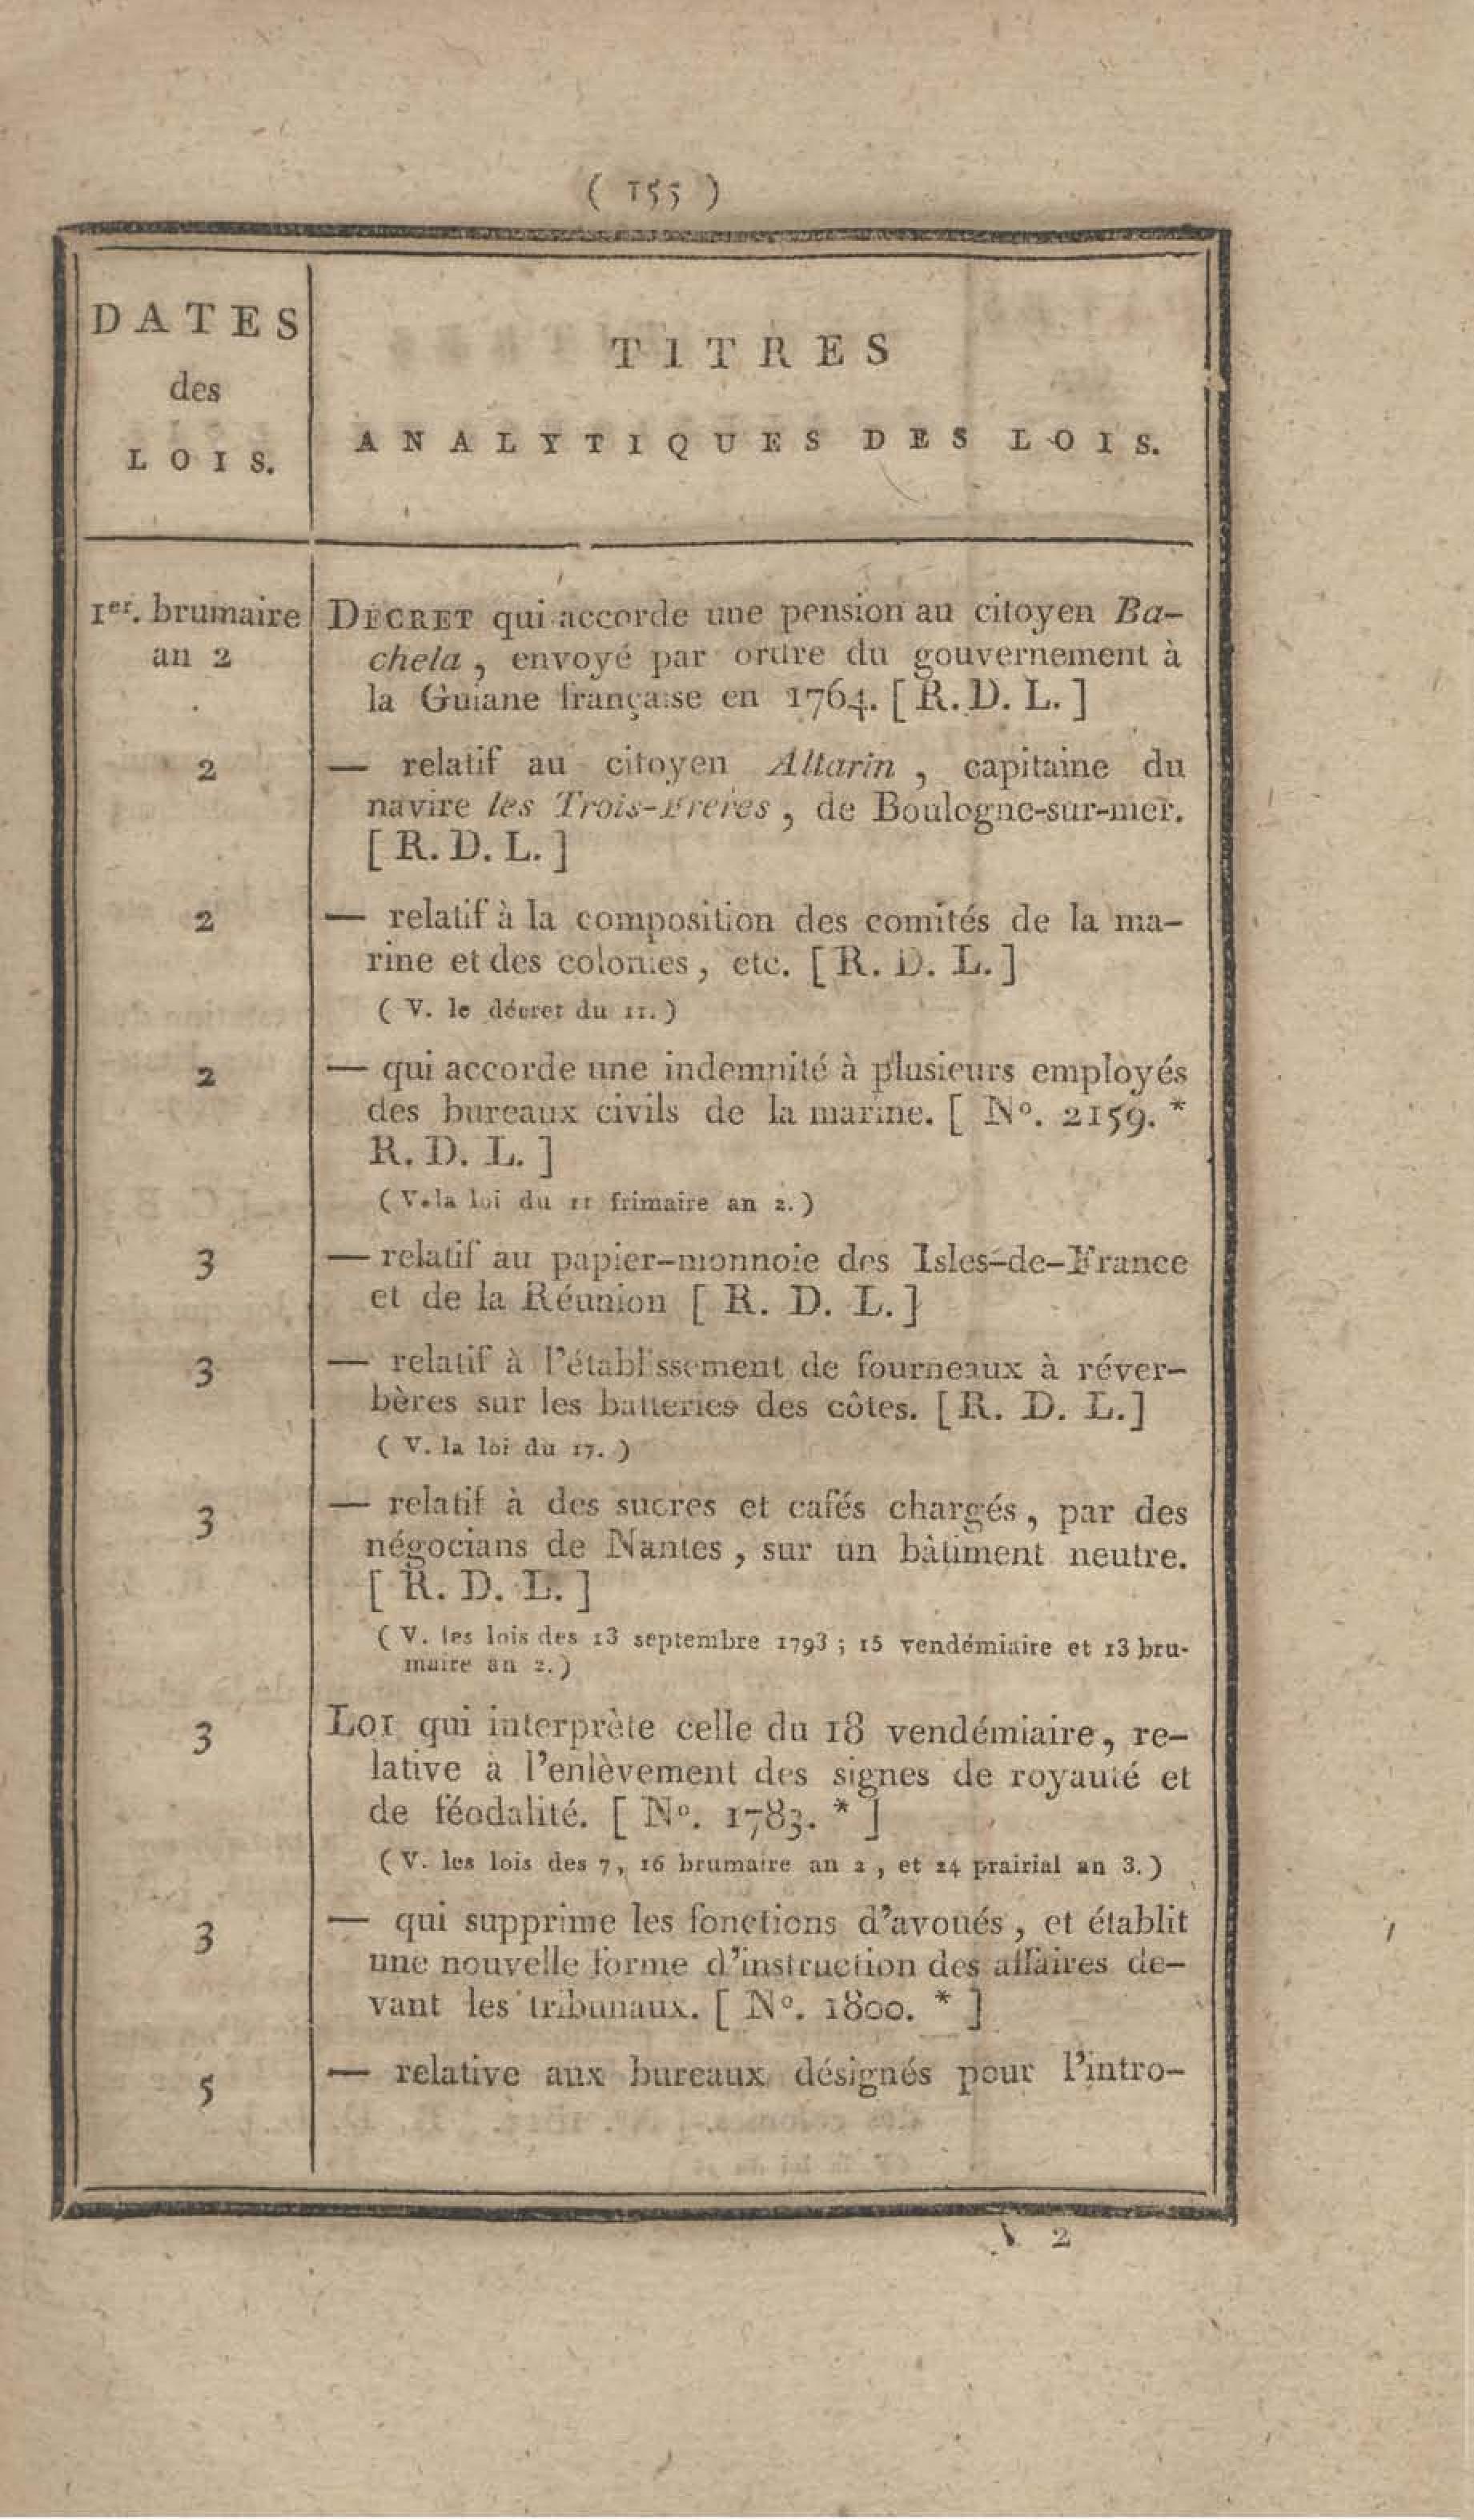 ( 155 )
DATES
des
LOIS.
TITRES
ANALYTIQUES DES LOIS.
1er. brumaire
an 2
DÉCRET qui accorde une pension au citoyen Ba-
chela, envoyé par ordre du gouvernement à
la Guiane française en 1764. [ R. D. L. ]
2
— relatif au citoyen Altarin, capitaine du
navire les Trois-Freres, de Boulogne-sur-mer.
[ R. D. L. ]
2
— relatif à la composition des comités de la ma-
rine et des colonies, etc. [ R. D. L. ]
( V. le décret du 11. )
2
— qui accorde une indemnité à plusieurs employés
des bureaux civils de la marine. [ No. 2159. *
R. D. L. ]
( V. la loi du 11 frimaire an 2. )
3
— relatif au papier-monnoie des Isles-de-France
et de la Réunion [ R. D. L. ]
3
— relatif à l'établissement de fourneaux à réver-
bères sur les batteries des côtes. [ R. D. L. ]
( V. la loi du 17. )
3
— relatif à des sucres et cafés chargés, par des
négocians de Nantes, sur un bâtiment neutre.
[ R. D. L. ]
( V. les lois des 13 septembre 1793 ; 15 vendémiaire et 13 bru-
maire an 2. )
3
LOI qui interprète celle du 18 vendémiaire, re-
lative à l'enlèvement des signes de royauté et
de féodalité. [ No. 1783. * ]
( V. les lois des 7, 16 brumaire an 2, et 24 prairial an 3. )
3
— qui supprime les fonctions d'avoués, et établit
une nouvelle forme d'instruction des affaires de-
vant les tribunaux. [ No. 1800. * ]
5
— relative aux bureaux désignés pour l'intro-
2